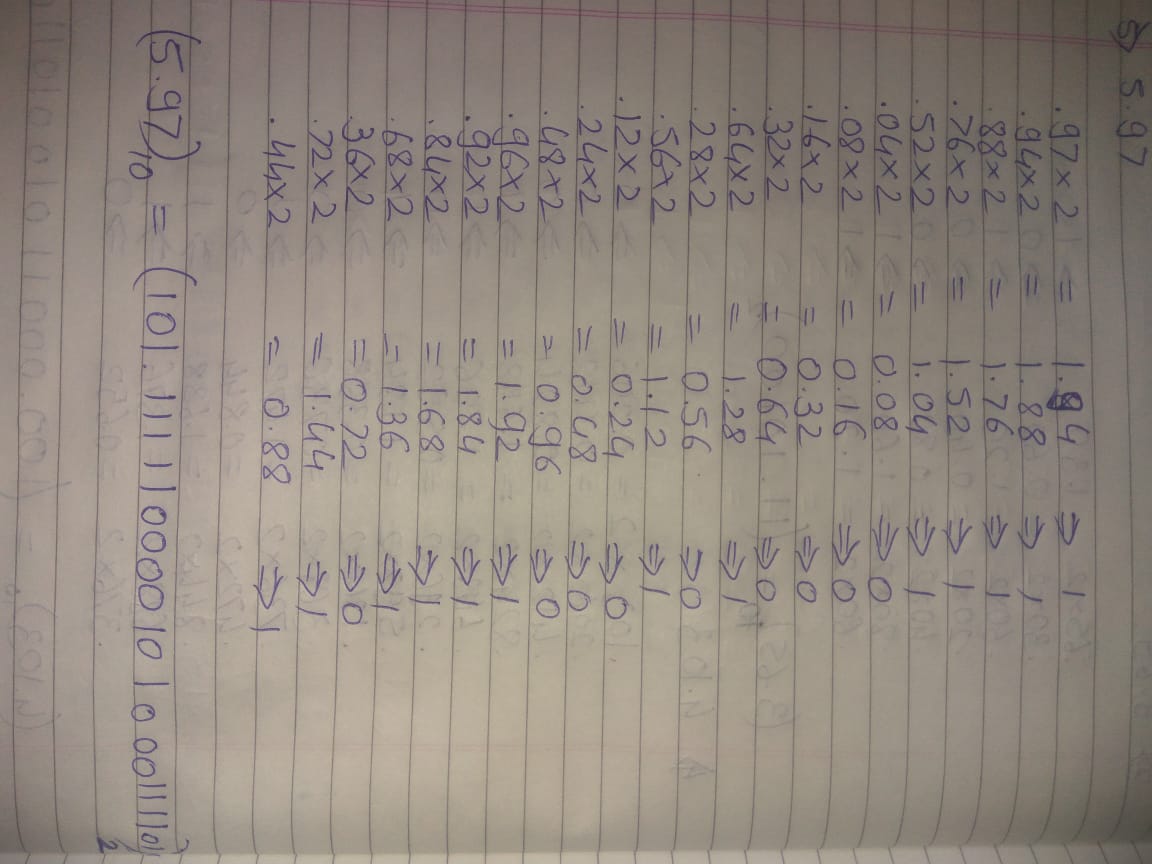 5) 5.97
.97×2 = 1.94 ⇒ 1
.94×2 = 1.88 ⇒ 1
.88×2 = 1.76 ⇒ 1
.76×2 = 1.52 ⇒ 1
.52×2 = 1.04 ⇒ 1
.04×2 = 0.08 ⇒ 0
.08×2 = 0.16 ⇒ 0
.16×2 = 0.32 ⇒ 0
.32×2 = 0.64 ⇒ 0
.64×2 = 1.28 ⇒ 1
.28×2 = 0.56 ⇒ 0
.56×2 = 1.12 ⇒ 1
.12×2 = 0.24 ⇒ 0
.24×2 = 0.48 ⇒ 0
.48×2 = 0.96 ⇒ 0
.96×2 = 1.92 ⇒ 1
.92×2 = 1.84 ⇒ 1
.84×2 = 1.68 ⇒ 1
.68×2 = 1.36 ⇒ 1
.36×2 = 0.72 ⇒ 0
.72×2 = 1.44 ⇒ 1
.44×2 = 0.88 ⇒ 1
(5.97)₁₀ = (101.1111100001010001111011)₂